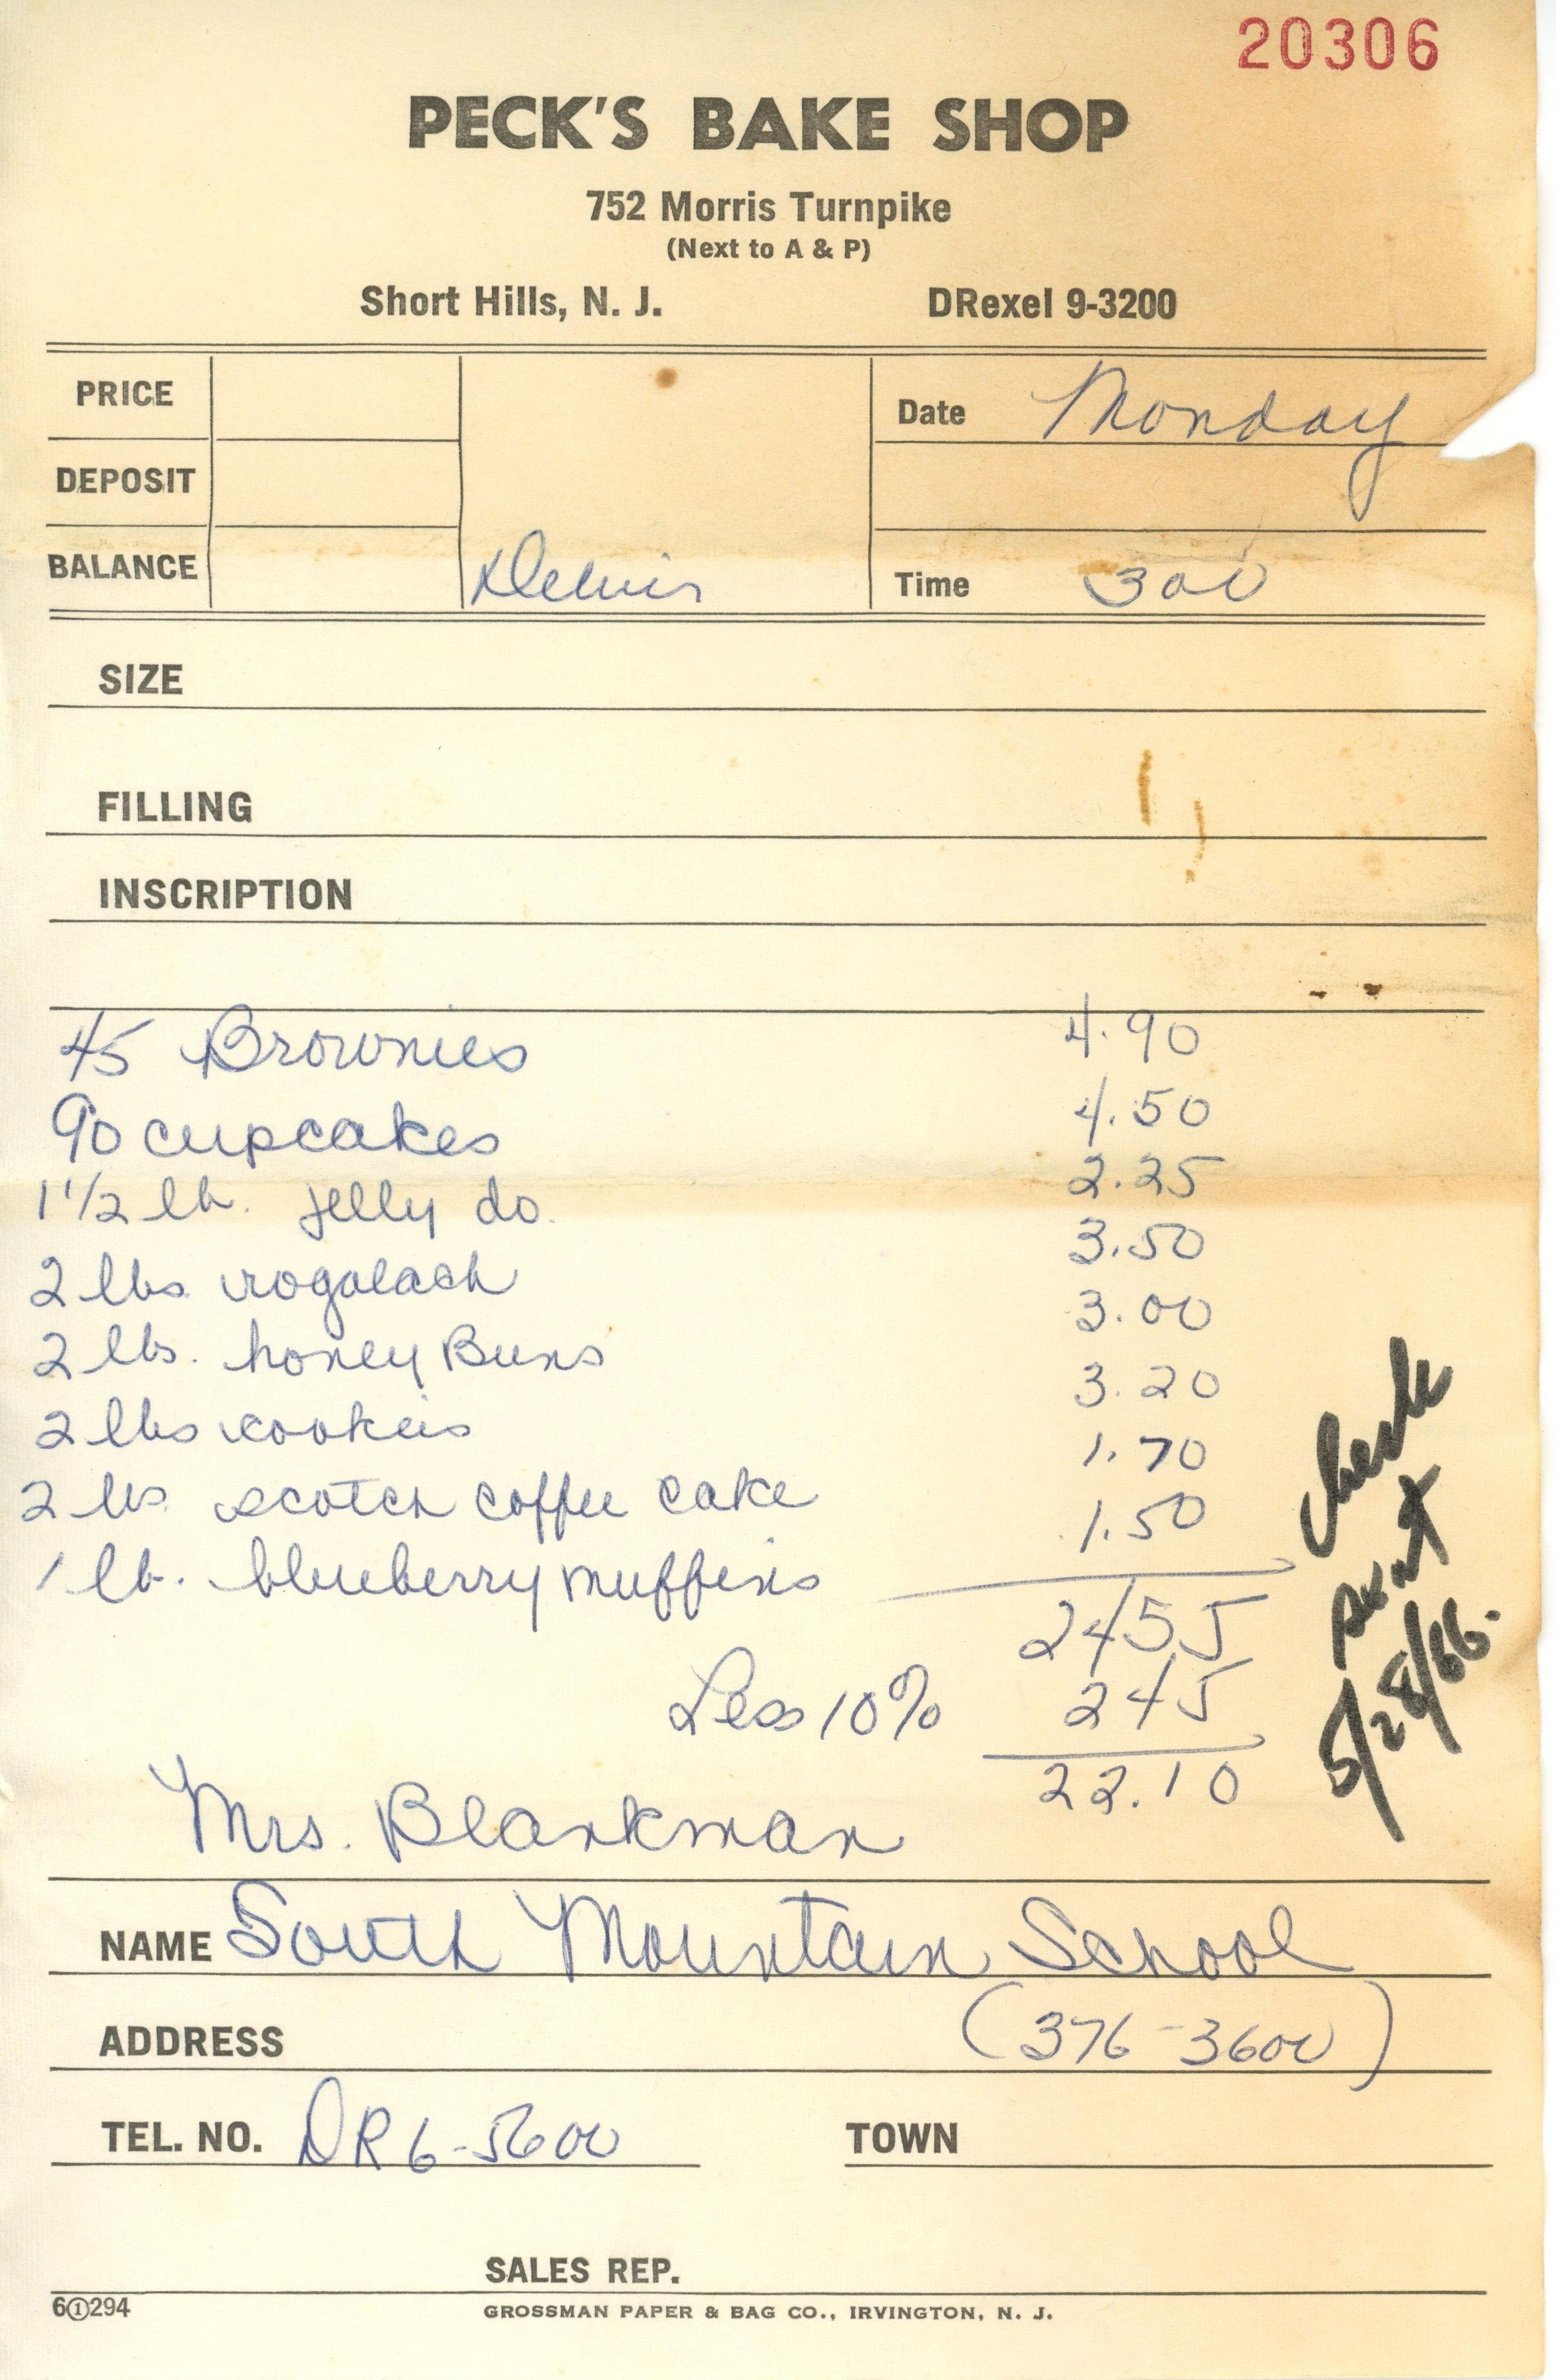 20306
PECK'S BAKE SHOP
752 Morris Turnpike
(Next to A & P)
Short Hills, N. J. DRexel 9-3200
PRICE
Date Monday
DEPOSIT
BALANCE
Time 300
SIZE
FILLING
INSCRIPTION
45 Brownies 4.90
90 cupcakes 4.50
1 1/2 lb. jelly do. 2.25
2 lbs rogalach 3.50
2 lbs. honey Buns 3.00
2 lbs cookies 3.20
2 lbs. scotch coffee cake 1.70
1 lb. blueberry muffins 1.50
2455
Less 10% 245
22.10
Check
sent
5/28/66.
Mrs. Blankman
NAME South Mountain School
ADDRESS (376-3600)
TEL. NO. DR6-5600 TOWN
SALES REP.
6①294 GROSSMAN PAPER & BAG CO., IRVINGTON, N. J.